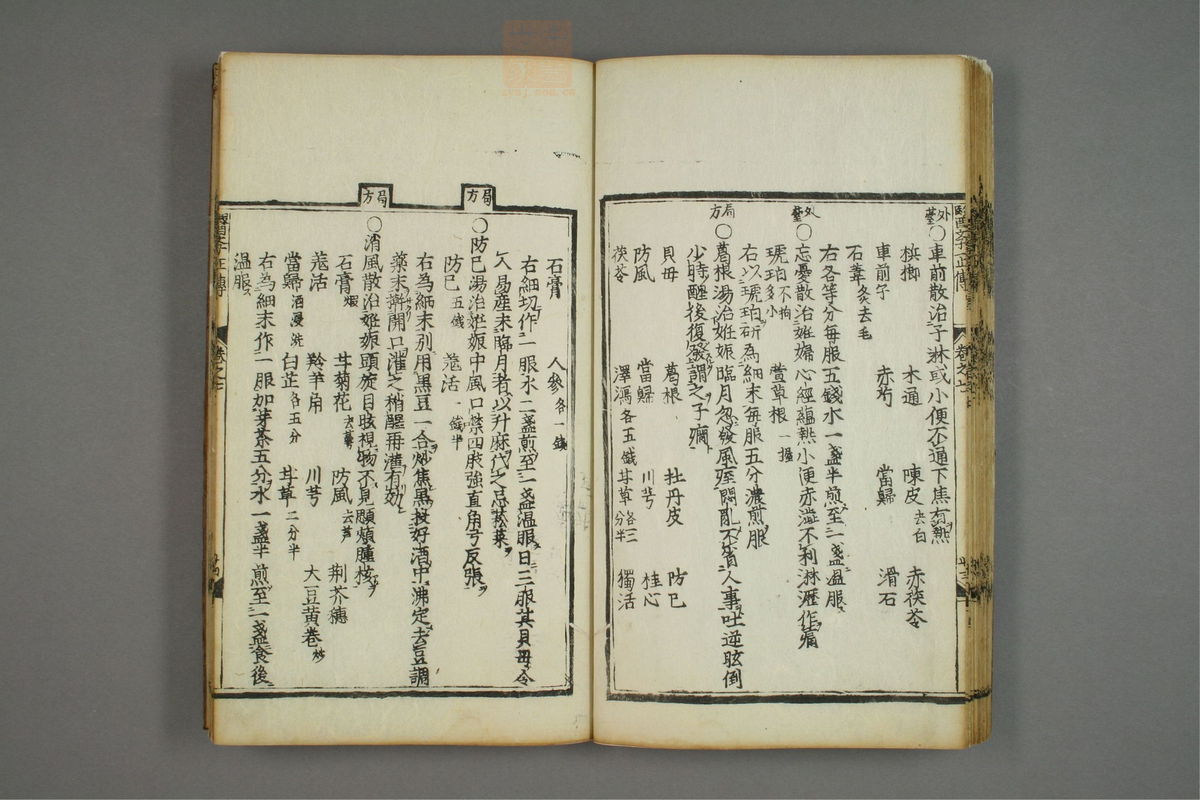 外臺
○車前散治子淋或小便不通下焦有熱
檳榔 木通 陳皮去白 赤茯苓
車前子 赤芍 當歸 滑石
石葦炙去毛
右各等分每服五錢水一盞半煎至一盞温服
外臺
○忘憂散治姙婦心經蘊熱小便赤澁不利淋瀝作痛
琥珀不拘多小 萱草根一握
右以琥珀研為細末每服五分濃煎服
局方
○葛根湯治姙娠臨月忽發風痙悶亂不省人事吐逆眩倒
少時醒後復發謂之子癇
貝母 葛根 牡丹皮 防已
防風 當歸 川芎 桂心
茯苓 澤瀉各五錢 甘草各三分半 獨活
石膏 人參各一錢
右細切作一服水二盞煎至一盞温服日三服其貝母令
人易産未臨月者以升麻代之忌菘菜
局方
○防已湯治姙娠中風口禁四肢強直角弓反張
防已五錢 羗活一錢半
右為細末別用黒豆一合炒焦黒投好酒中沸定去豆調
藥末擀開口灌之稍醒再灌有効
局方
○消風散治姙娠頭旋目眩視物不見頤頰腫核
石膏煆 甘菊花去蕚 防風去芦 荆芥穗
羗活 羚羊角 川芎 大豆黄卷炒
當歸酒浸洗 白芷各五分 甘草二分半
右為細末作一服加芽茶五分水一盞半煎至一盞食後
温服
醫學正傳 卷之七